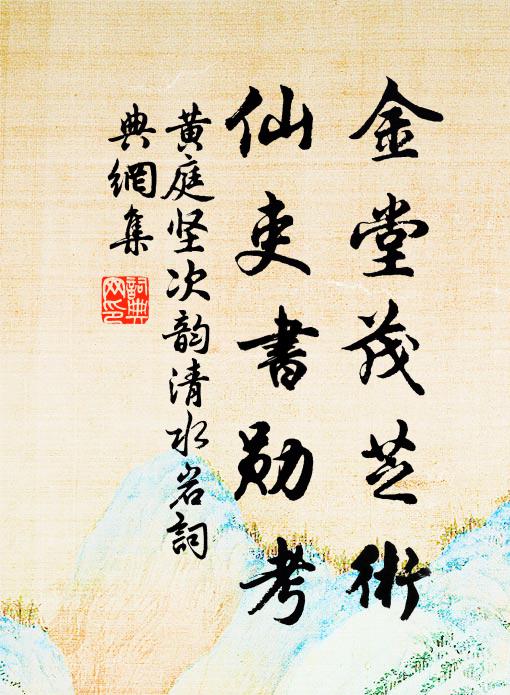 金堂茂芝術
仙吏書勛考
黄庭坚次韵清水岩詞
典網集
詞典
网印